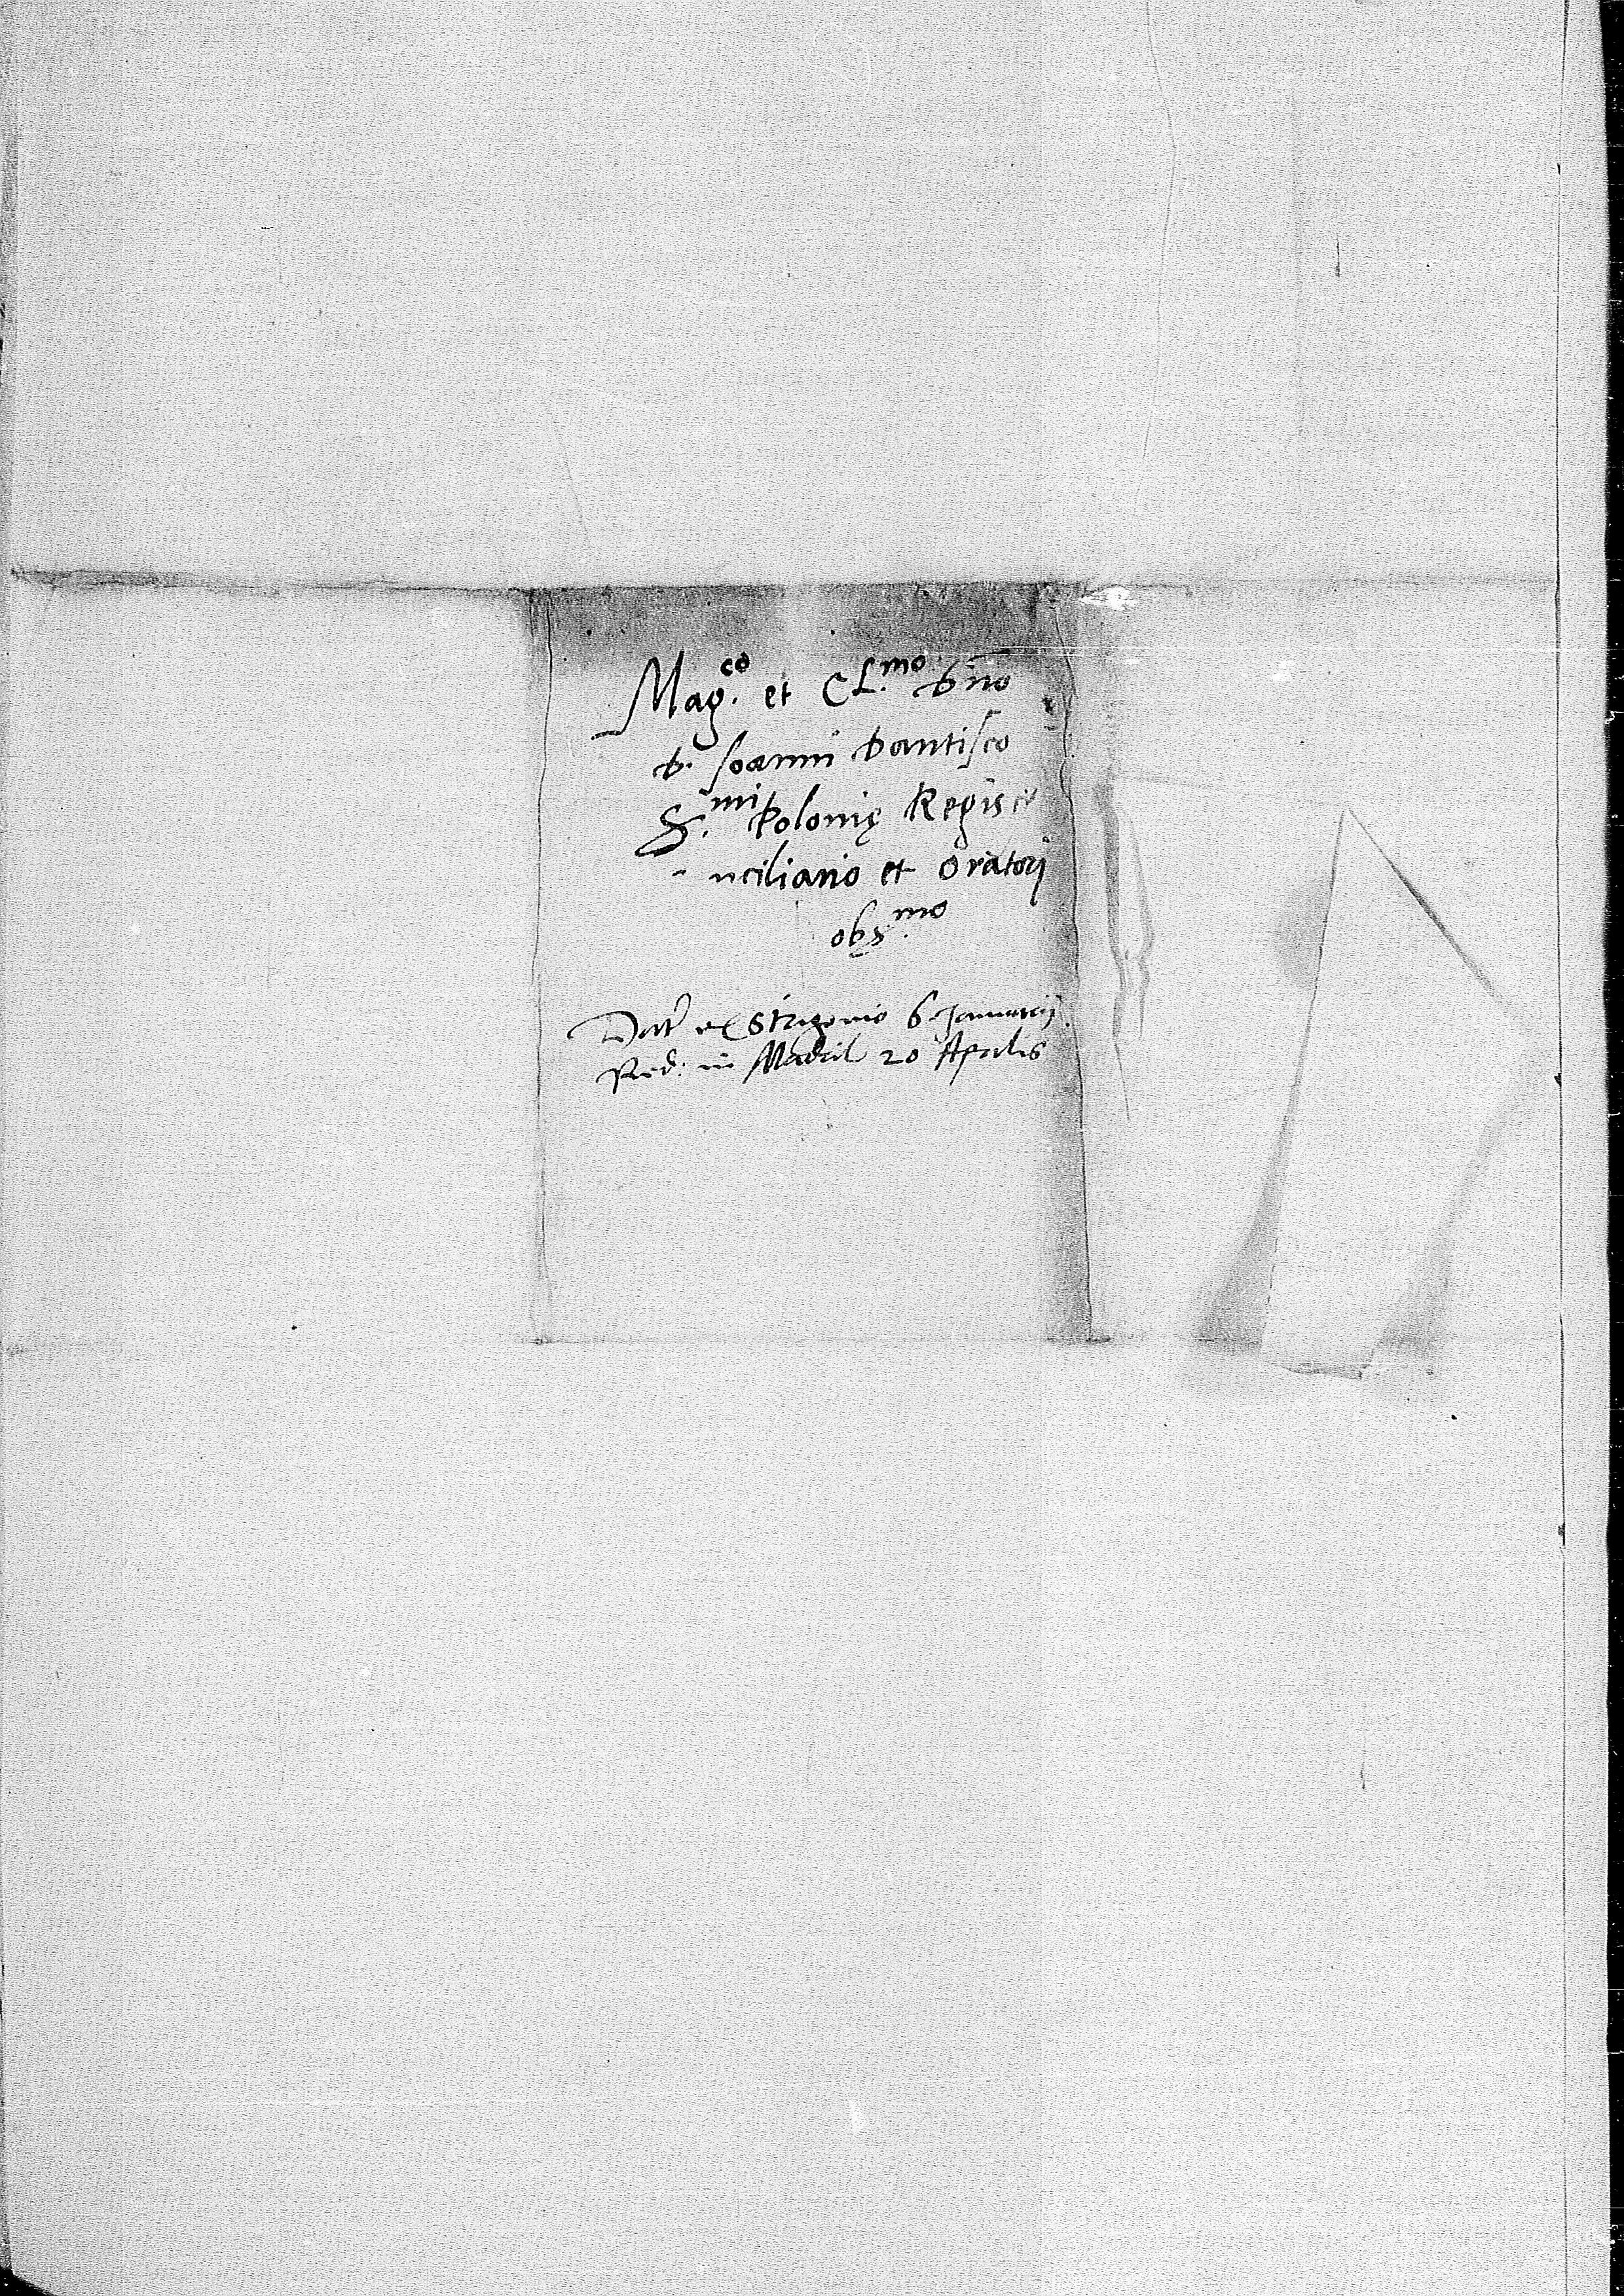 Mag.co et Cl.mo dño
d. Joanni Dantisco
S.mi Polonię Regis
nciliario et oratorj
obs.mo
Dat' ex Strigonio 6 Januarij
Red: in Madril 20 Aprilis